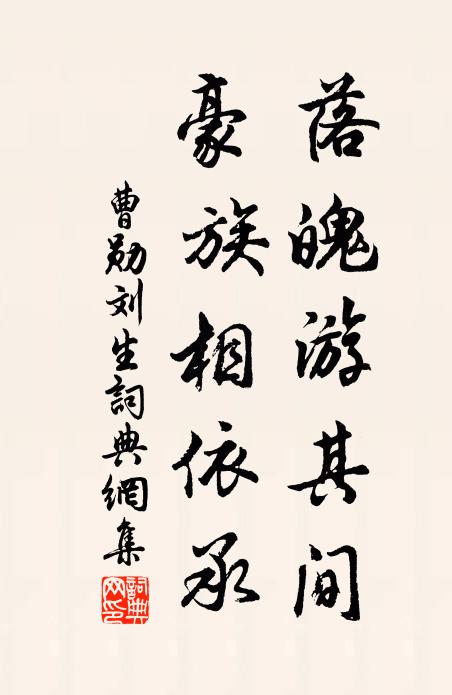 落魄游其间
豪族相依承
曹勋刘生詞典網集
詞典网印